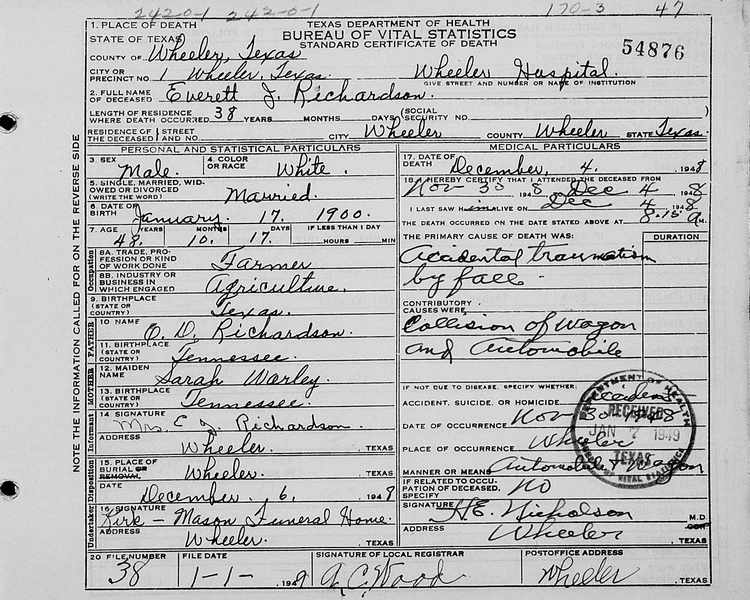 2420-1 242-0-1 170-3 47
1. PLACE OF DEATH TEXAS DEPARTMENT OF HEALTH
STATE OF TEXAS BUREAU OF VITAL STATISTICS
COUNTY OF Wheeler, Texas STANDARD CERTIFICATE OF DEATH 54876
CITY OR PRECINCT NO. 1 Wheeler, Texas. Wheeler Hospital.
GIVE STREET AND NUMBER OR NAME OF INSTITUTION
2. FULL NAME OF DECEASED Everett J. Richardson.
LENGTH OF RESIDENCE WHERE DEATH OCCURRED 38 YEARS MONTHS DAYS (SOCIAL SECURITY NO.
RESIDENCE OF THE DECEASED STREET AND NO. CITY Wheeler COUNTY Wheeler STATE Texas.
PERSONAL AND STATISTICAL PARTICULARS
3. SEX Male. 4. COLOR OR RACE White.
5. SINGLE, MARRIED, WIDOWED OR DIVORCED (WRITE THE WORD) Married.
6. DATE OF BIRTH January. 17. 1900.
7. AGE YEARS MONTHS DAYS IF LESS THAN 1 DAY
48. 10. 17. HOURS MIN
Occupation
8A. TRADE, PROFESSION OR KIND OF WORK DONE Farmer
8B. INDUSTRY OR BUSINESS IN WHICH ENGAGED Agriculture.
9. BIRTHPLACE (STATE OR COUNTRY) Texas.
FATHER
10 NAME O. D. Richardson.
11. BIRTHPLACE (STATE OR COUNTRY) Tennessee.
MOTHER
12. MAIDEN NAME Sarah Warley.
13. BIRTHPLACE (STATE OR COUNTRY) Tennessee.
Informant
14 SIGNATURE Mrs. E. J. Richardson.
ADDRESS Wheeler. , TEXAS
Disposition
15. PLACE OF BURIAL OR REMOVAL Wheeler. , TEXAS
DATE December. 6. 1948
Undertaker
16. SIGNATURE Kirk - Mason Funeral Home.
ADDRESS Wheeler. , TEXAS
MEDICAL PARTICULARS
17. DATE OF DEATH December, 4. 1948
18. I HEREBY CERTIFY THAT I ATTENDED THE DECEASED FROM
Nov 30 1948 Dec 4 1948
I LAST SAW HIM ALIVE ON Dec 4 1948
THE DEATH OCCURRED ON THE DATE STATED ABOVE AT 8:15 a M.
THE PRIMARY CAUSE OF DEATH WAS: DURATION
Accidental
by fall -
CONTRIBUTORY CAUSES WERE,
Collision of Wagon
and Automobile
IF NOT DUE TO DISEASE, SPECIFY WHETHER:
ACCIDENT, SUICIDE, OR HOMICIDE Accident
DATE OF OCCURRENCE Nov 30 1948
PLACE OF OCCURRENCE Wheeler
MANNER OR MEANS Automobile & Wagon
IF RELATED TO OCCUPATION OF DECEASED, SPECIFY NO
SIGNATURE H.E. Nicholson M.D.
ADDRESS Wheeler , TEXAS
DEPARTMENT OF HEALTH
RECEIVED
JAN 7 1949
TEXAS
BUREAU OF VITAL STATISTICS
20 FILE NUMBER FILE DATE SIGNATURE OF LOCAL REGISTRAR POSTOFFICE ADDRESS
38 1-1- 1949 A. C. Wood Wheeler , TEXAS
NOTE THE INFORMATION CALLED FOR ON THE REVERSE SIDE